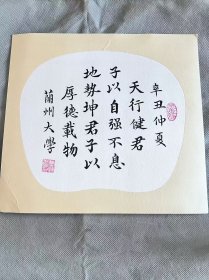 辛丑仲夏
天行健君
子以自强不息
地势坤君子以
厚德载物
蘭州大學